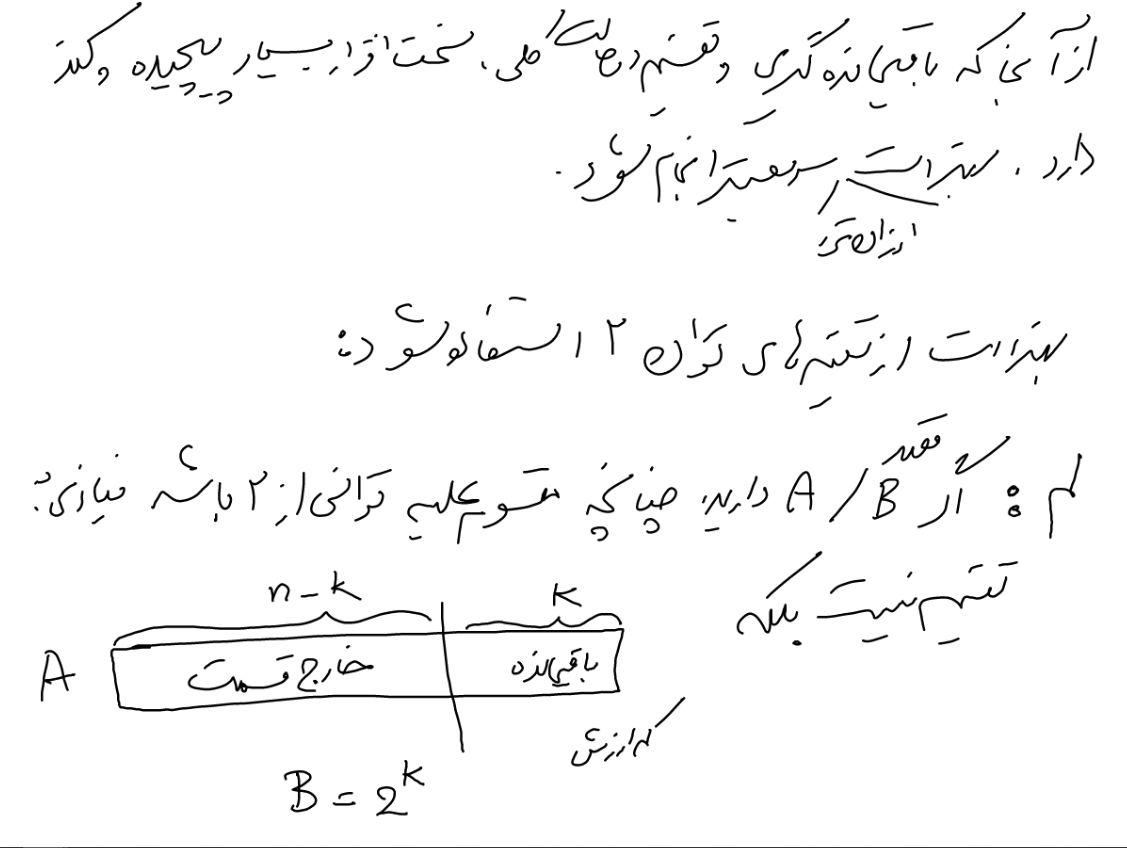 از آنجا که باقیمانده‌گیری و تقسیم در حالت کلی، سخت‌افزار بسیار پیچیده و کند
دارد، بهتر است سریعتر انجام شود.
ارزانتر
بهتر است از تقسیم‌های توان ۲ استفاده شود:
لم: اگر A / B دارید، چنانچه مقسوم علیه توانی از ۲ باشد نیازی به
تقسیم نیست بلکه
n-k
k
A
خارج قسمت
باقیمانده
کم ارزش
B = 2^k